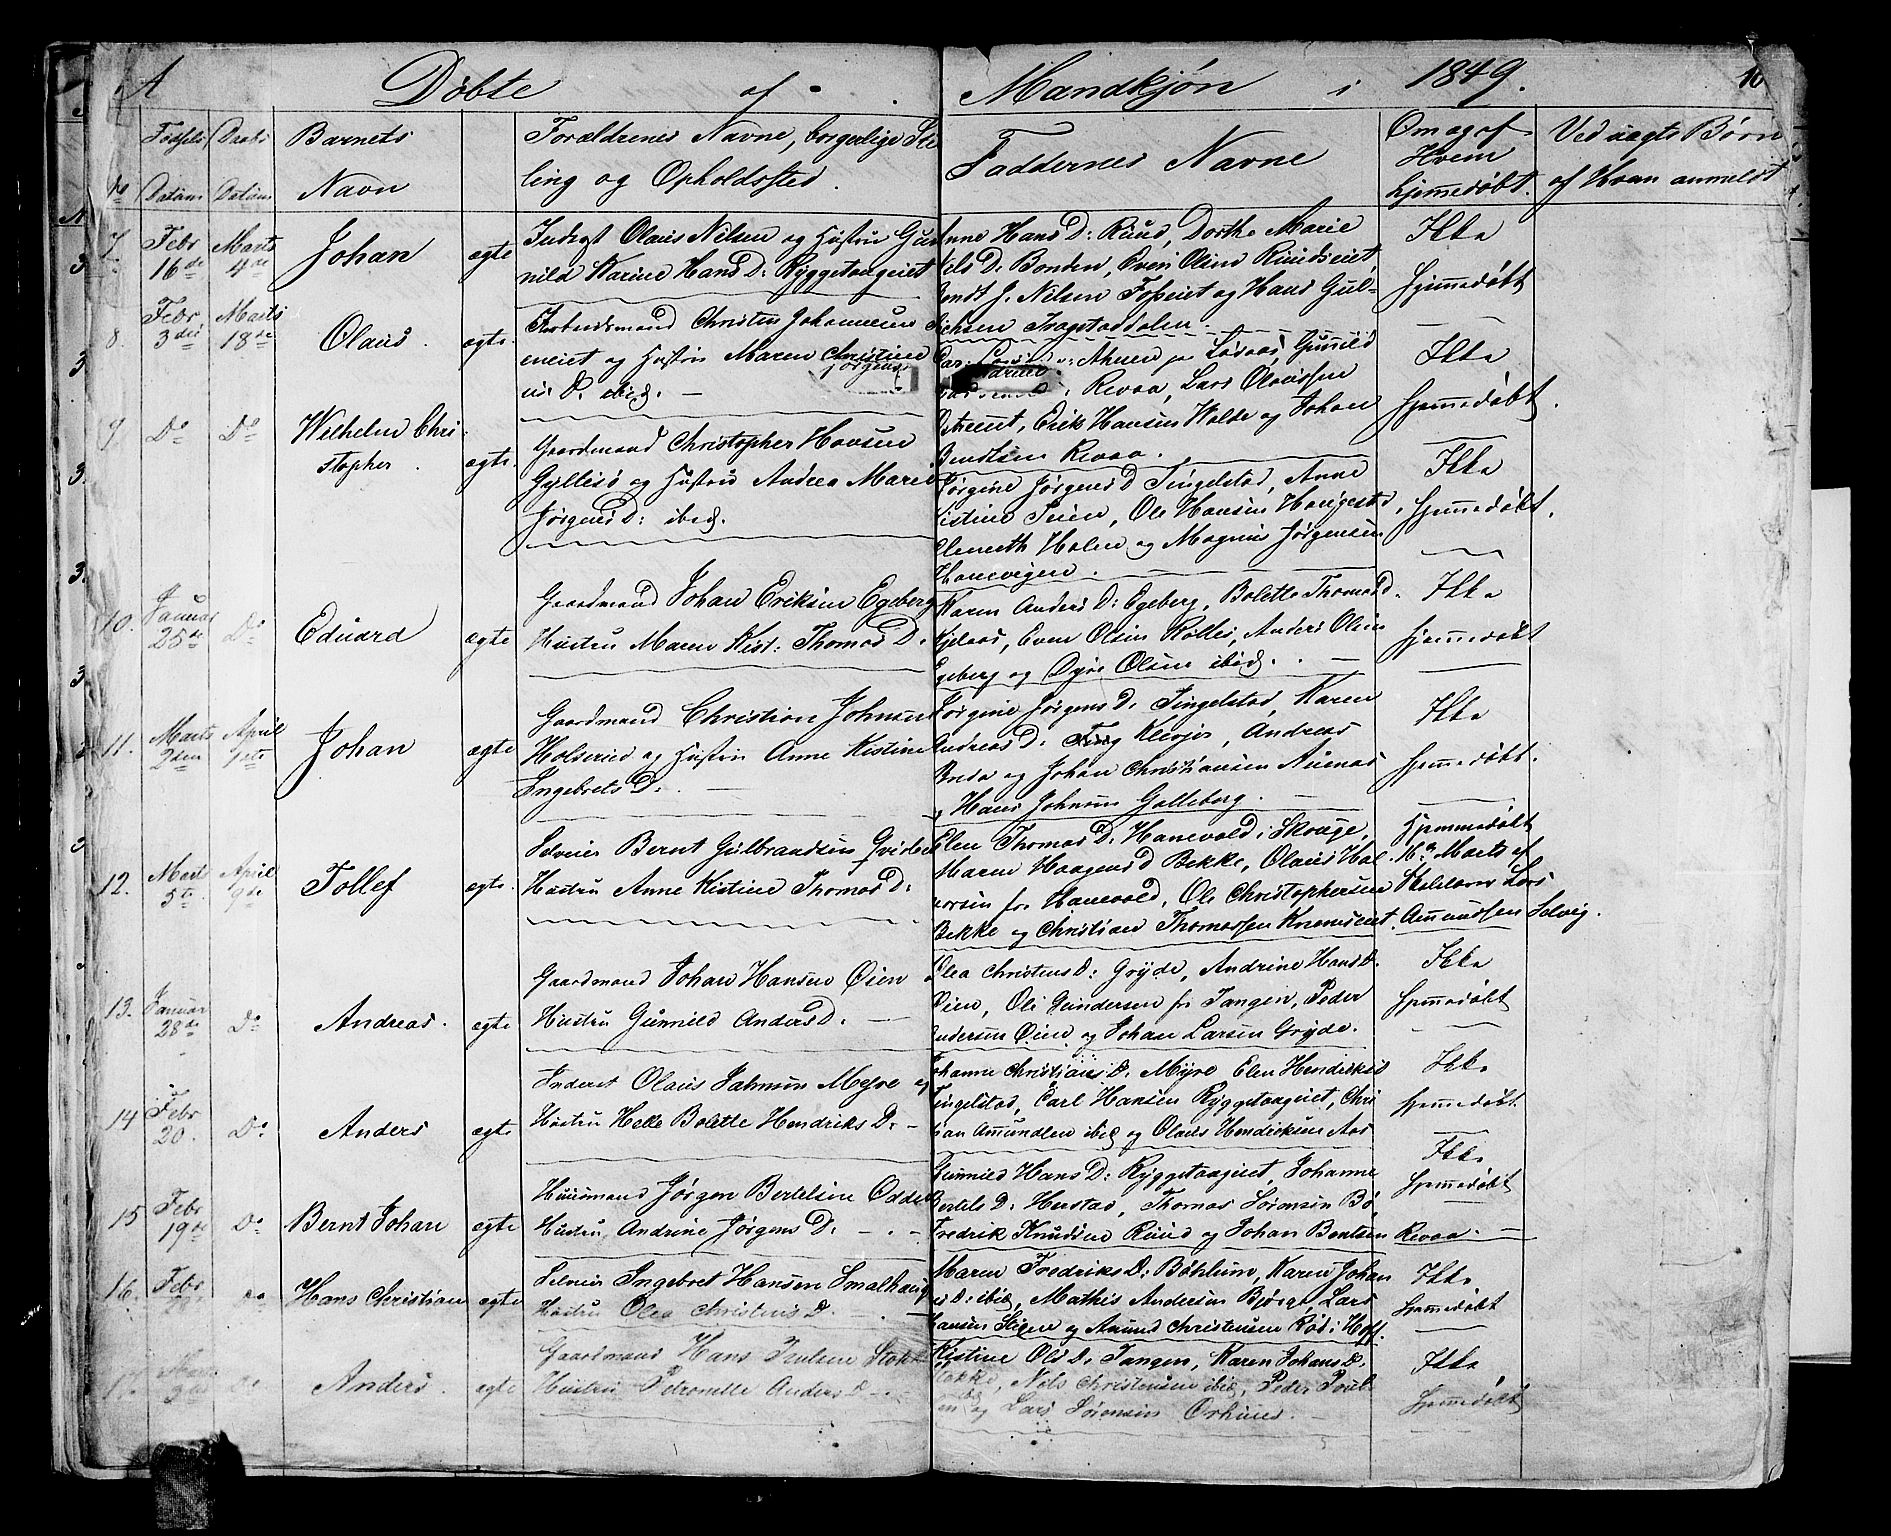 A Döbte af Mandkjön i 1849. 10
Födsels Daabs Barnets Forældrenes Navne, borgerlige Stel
Faddernes Navne
Om og af Ved uægte Börn
Datum Datum Navn ling og Opholdssted.
Hvem
hjemmedöbt. af Hvem anmeldt
7. Febr 16de Marts 4de Johan ægte
Inderst Olaus Nilsen og Hustru Gun
nild Karine Hans D: Ryggetangeiet
Anne Hans D: Ruud, Dorthe Marie
Nils D: Bonden, Even Olsen Ruudseiet
Berndt J. Nilsen Fosseiet og Hans Gul-
Ikke
hjemmedöbt
8. Febr 3die Marts 18de Olaus. ægte.
Christen Johannesen
eneiet og Hustru Maren Christine
Jörgens
D. ibid.
Revaa, Lars Olaussen
Erik Hansen Wolde og Johan
Bendtsen Revaa.
Ikke
hjemmedöbt.
9 Do Do Wilhelm Chri-
stopher. ægte.
Gaardmand Christopher Hansen
Gyllesö og Hustru Andrea Marie
Jörgens D: ibid.
Jörgine Jörgens D Tingelstad, Anne
Kistine Teien, Ole Hansen Haugestad,
Clemeth Holm og Magnus Jörgensen
Hanevigen.
Ikke
hjemmedöbt.
10. Januar 25de Do Eduard ægte
Gaardmand Johan Eriksen Egeberg
Hustru Maren Kist: Thomas D.
Karen Anders D: Egeberg, Bolette Thomas D.
Kjelaas, Even Olsen Rölles, Anders Olsen
Egeberg og Dyre Olsen ibid.
Ikke
hjemmedöbt
11. Marts 2den April 1ste Johan ægte
Gaardmand Christian Johnsen
Holseried og Hustru Anne Kistine
Ingebrets D.
Jörgine Jörgens D. Tingelstad, Karen
Andreas D: Klevjer, Andreas
Breda og Johan Christiansen Auenas
og Hans Johnsen Galleberg.
Ikke
hjemmedöbt.
12. Marts 5te April 9de Tollef ægte.
Selveier Bernt Gulbrandsen Hvidsted
Hustru Anne Kistine Thomas D:
Elen Thomas D: Hanevold i Skouge,
Maren Haagens D Bekke, Olaus Hal-
vorsen fr Hanevold, Ole Christophersen
Bekke og Christian Thomassen Knemseiet.
Hjemmedöbt
Marts af
Skolelærer Lars
Amundssen Solvig.
13. Januar 28de Do Andreas. ægte
Gaardmand Johan Hansen Öien
Hustru Gunnild Anders D.
Olea Christens D: Gryde, Andrine Hans D.
Öien, Ole Gundersen fr Tangen, Peder
Andersen Öien og Johan Larsen Gryde.
Ikke
hjemmedöbt
14 Febr 20. Do Anders ægte
Inderst Olaus Jahnsen Myre og
Hustru Helle Bolette Hendriks D.
Johanne Christians D. Myre Elen Hendriks D
Tingelstad, Carl Hansen Ryggetangeiet, Chri
stian Amundsen ibid og Olaus Hendriksen Aas
Ikke
hjemmedöbt.
15 Febr 19de Do Bernt Johan ægte
Huusmand Jörgen Bertelsen Odde
Hustru Andrine Jörgens D:
Gunnild Hans D: Ryggetangeiet, Johanne
Bertels D: Herstad, Thomas Sörensen Bö,
Fredrik Knudsen Ruud og Johan Bentsen Revaa.
Ikke
hjemmedöbt
16. Febr Do Hans Christian ægte
Selveier Ingebret Hansen Smalhaug
Hustru Olea Christens D.
Maren Fredriks D: Böhlum, Karen Johan
ns D: ibid, Mathis Andersen Bjerge, Lars
Hansen Stigen og Amund Christensen Röd i Hoff.
Ikke
hjemmedöbt
17. Marts 3die Do Anders. ægte
Gaardmand Hans Iversen Stokke
Hustru Petronelle Anders D
Kistine Ols D. Tangen, Karen Johans D.
Stokke, Nels Christensen ibid, Peder Poul-
sen og Lars Sörensen Orhuus.
Ikke
hjemmedöbt